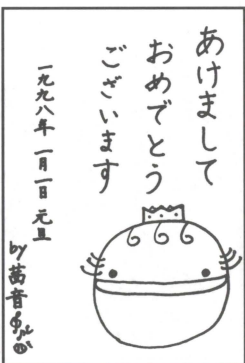 あけまして
おめでとう
ございます
一九九八年 一月一日 元旦
by 茜音